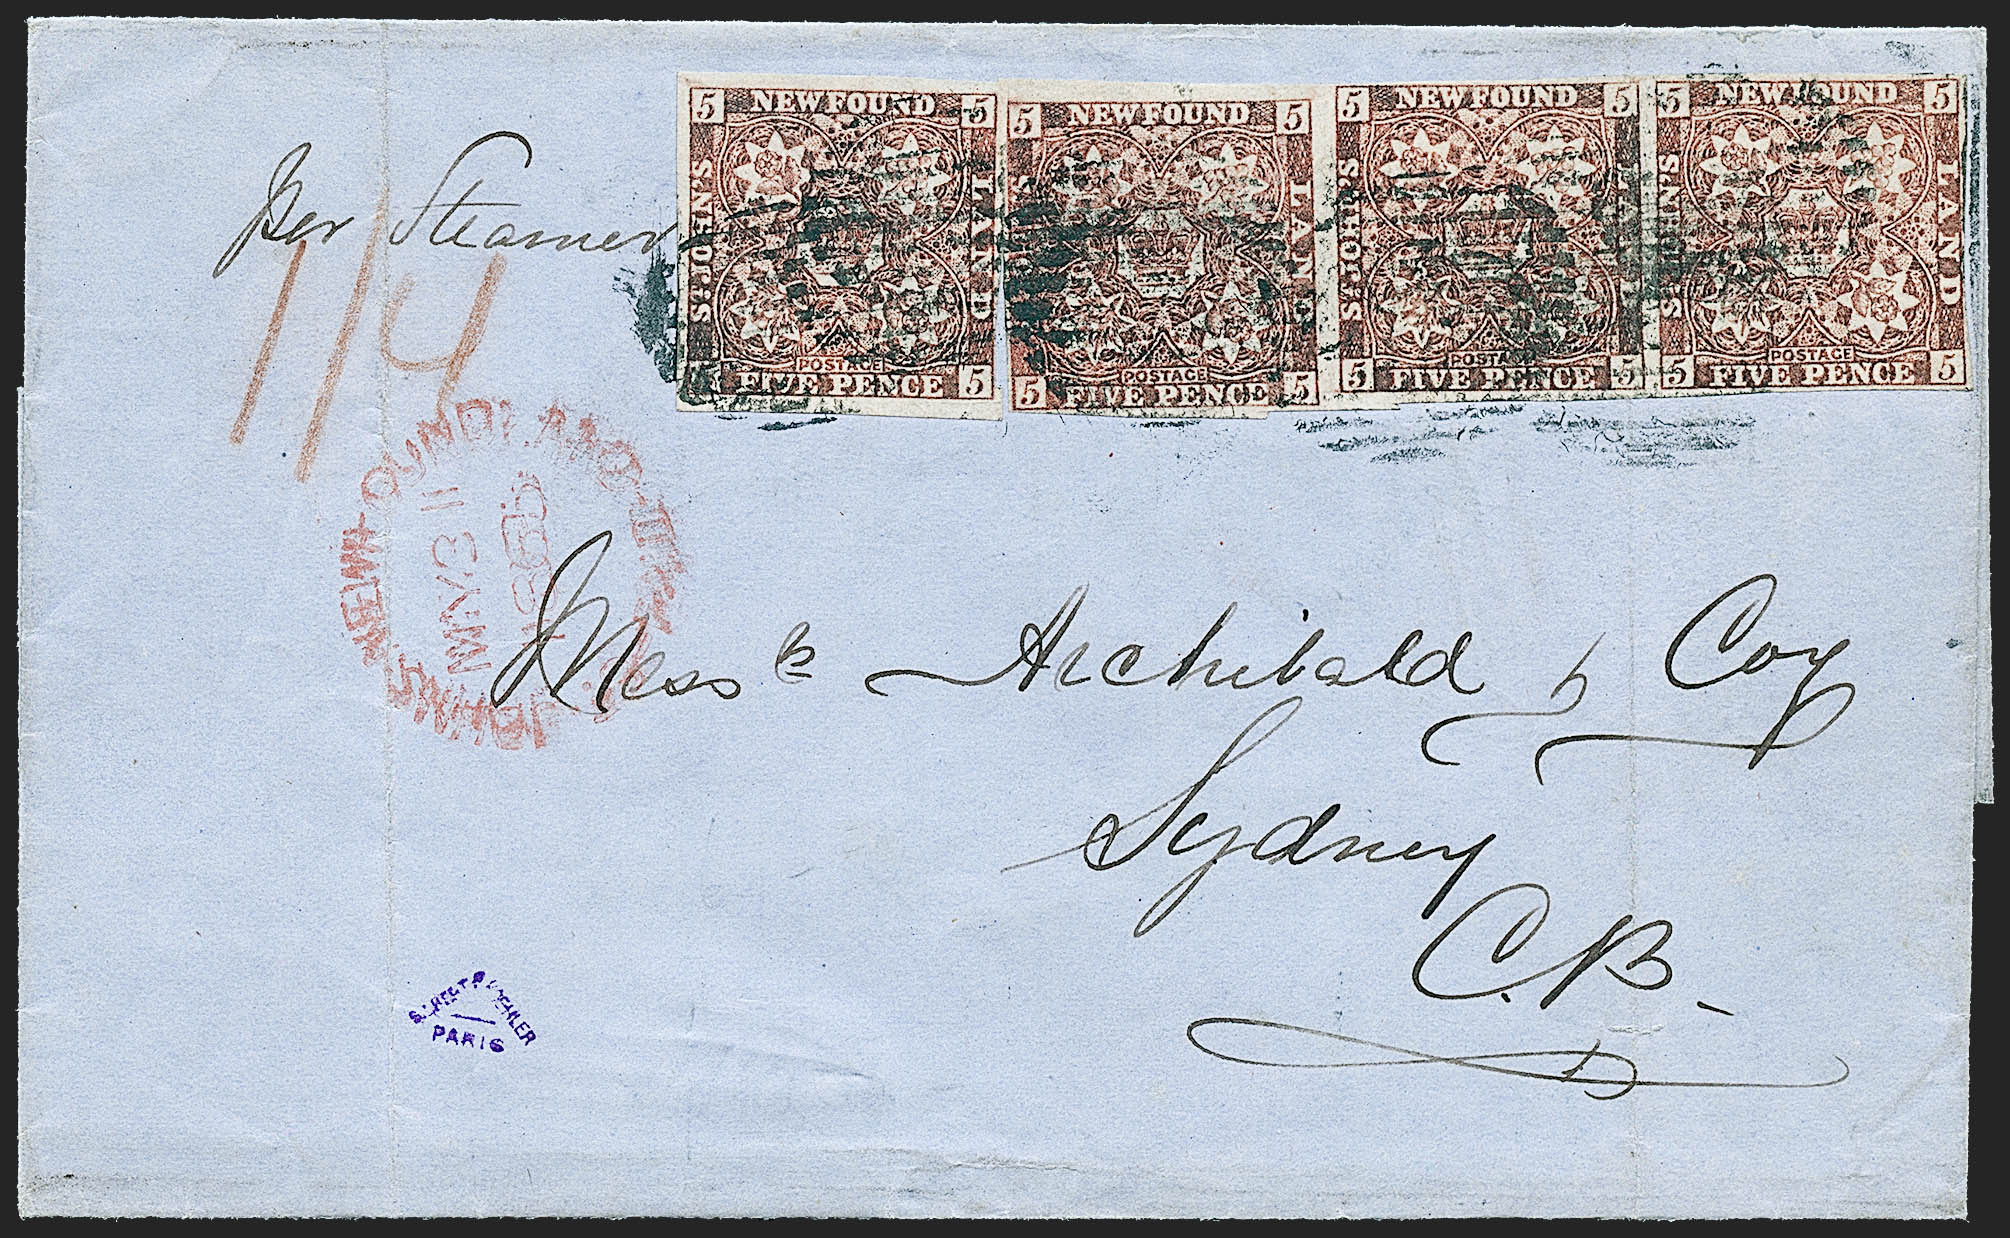 5 NEWFOUND 5
ST. JOHN'S
LAND
POSTAGE
5 FIVE PENCE 5
5 NEWFOUND 5
LAND
POSTAGE
5 FIVE PENCE 5
5 NEWFOUND 5
ST. JOHN'S
POSTAGE
5 FIVE PENCE 5
5 NEWFOUND 5
ST. JOHN'S
LAND
POSTAGE
5 FIVE PENCE 5
per Steamer
1/4
NEWFOUNDLAND
ST. JOHNS
MY 31
Mess rs Archibald & Coy
Sydney
C.B.
PARIS